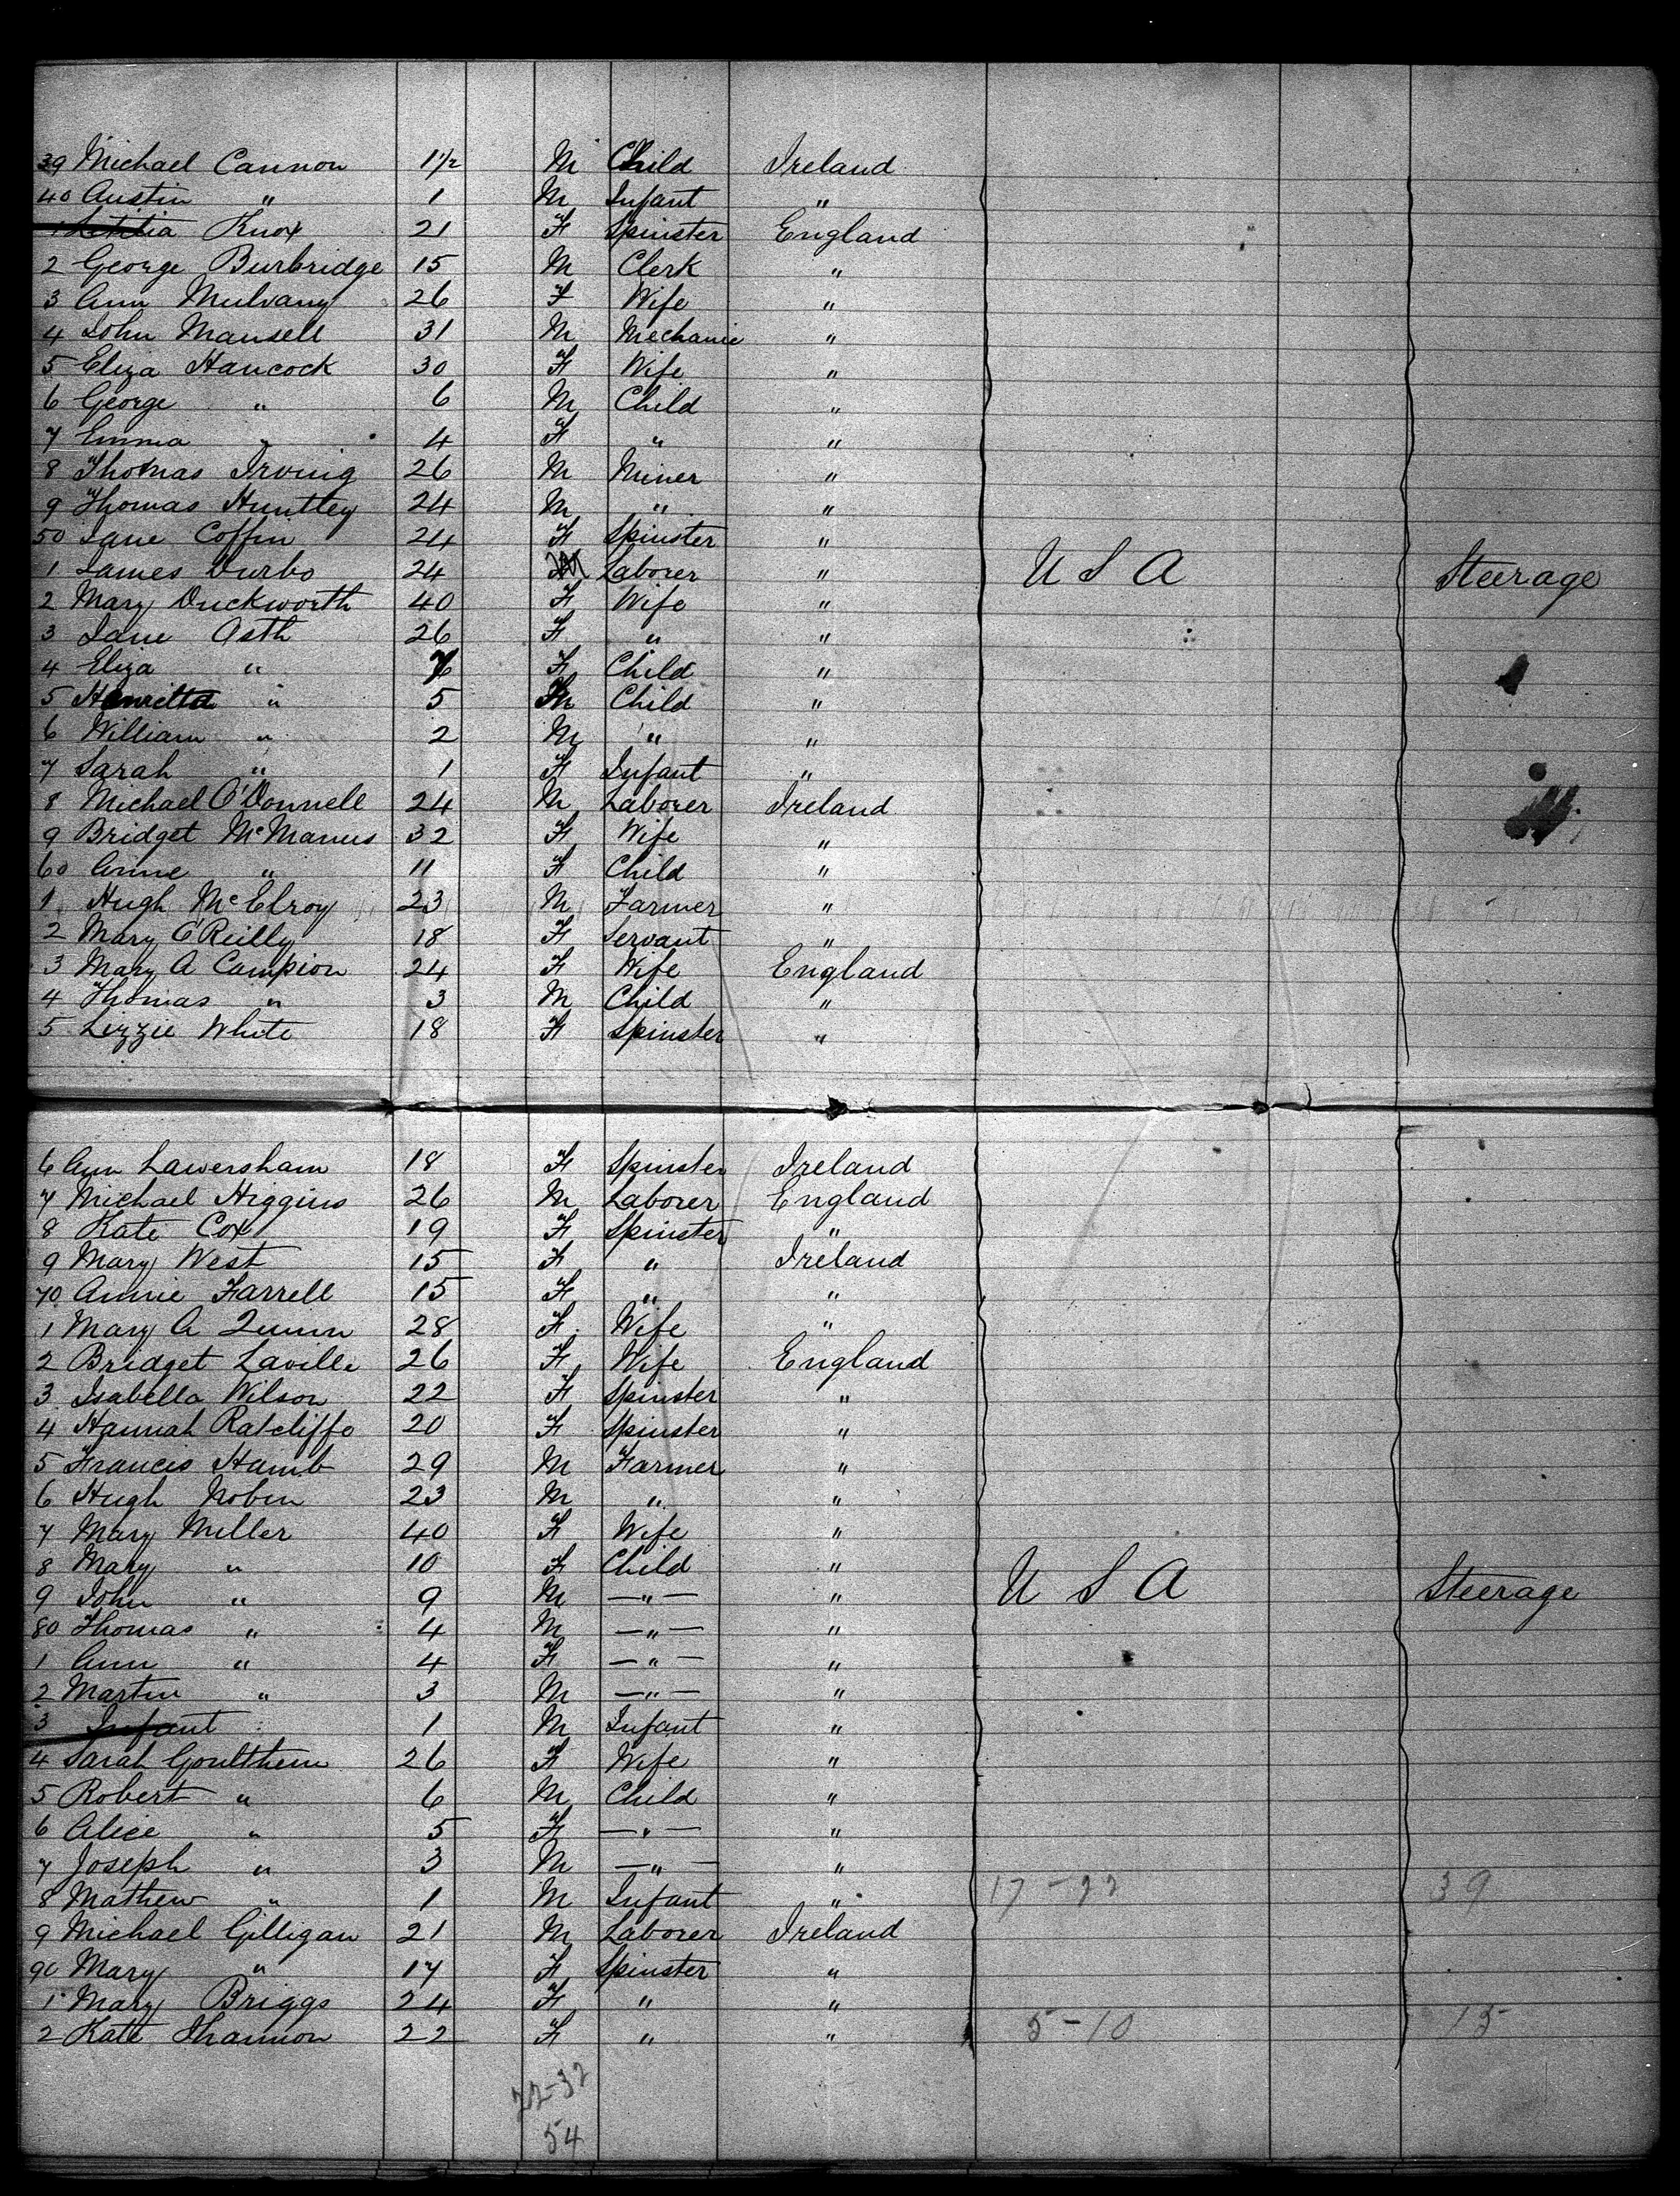 39 Michael Cannon 1 1/2 M Child Ireland
40 Austin " 1 M Infant "
1 Letitia Knox 21 F Spinster England
2 George Burbridge 15 M Clerk "
3 Ann Mulvany 26 F Wife "
4 John Mansell 31 M Mechanic "
5 Eliza Hancock 30 F Wife "
6 George " 6 M Child "
7 Emma " 4 F " "
8 Thomas Irving 26 M Miner "
9 Thomas Huntley 24 M " "
50 Jane Coffin 24 F Spinster "
1 James Durbo 24 M Laborer " U S A Steerage
2 Mary Duckworth 40 F Wife "
3 Jane Asth 26 F " "
4 Eliza " F Child "
5 Henrietta " 5 Child "
6 William " 2 M " "
7 Sarah " 1 F Infant "
8 Michael O'Donnell 24 M Laborer Ireland
9 Bridget McManus 32 F Wife "
60 Anne " 11 F Child "
1 Hugh McElroy 23 M Farmer "
2 Mary O'Reilly 18 F Servant "
3 Mary A Campion 24 F Wife England
4 Thomas " 3 M Child "
5 Lizzie White 18 F Spinster "
6 Ann Lawersham 18 F Spinster Ireland
7 Michael Higgins 26 M Laborer England
8 Kate Cox 19 F Spinster "
9 Mary West 15 F " Ireland
70 Annie Farrell 15 F " "
1 Mary A Quinn 28 F Wife "
2 Bridget Laville 26 F Wife England
3 Isabella Wilson 22 F Spinster "
4 Hannah Ratcliffe 20 F Spinster "
5 Francis Hamb 29 M Farmer "
6 Hugh Nobin 23 M " "
7 Mary Miller 40 F Wife "
8 Mary " 10 F Child "
9 John " 9 M — " — " U S A Steerage
80 Thomas " 4 M — " — "
1 Ann " 4 F — " — "
2 Martin " 3 M — " — "
3 Infant 1 M Infant "
4 Sarah Goulthem 26 F Wife "
5 Robert " 6 M Child "
6 Alice " 5 F — " — "
7 Joseph " 3 M — " — "
8 Mathew " 1 M Infant " 17-22 39
9 Michael Gilligan 21 M Laborer Ireland
90 Mary " 17 F Spinster "
1 Mary Briggs 24 F " "
2 Kate Shannon 22 F " " 5-10 15
22-32
54